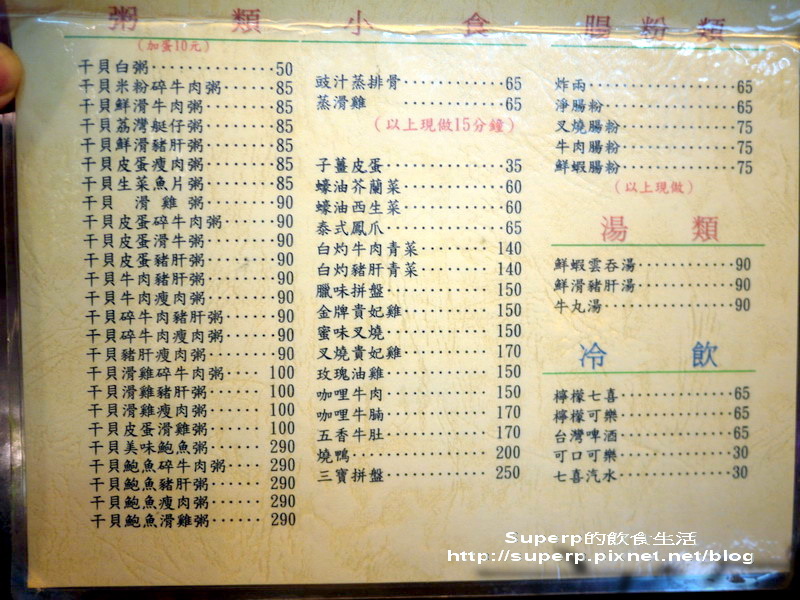 粥類
(加蛋10元)
干貝白粥··············50
干貝米粉碎牛肉粥······85
干貝鮮滑牛肉粥········85
干貝荔灣艇仔粥········85
干貝鮮滑豬肝粥········85
干貝皮蛋瘦肉粥········85
干貝生菜魚片粥········85
干貝 滑雞粥········90
干貝皮蛋碎牛肉粥······90
干貝皮蛋滑牛粥········90
干貝皮蛋豬肝粥········90
干貝牛肉豬肝粥········90
干貝牛肉瘦肉粥········90
干貝碎牛肉豬肝粥······90
干貝碎牛肉瘦肉粥······90
干貝豬肝瘦肉粥········90
干貝滑雞碎牛肉粥···· 100
干貝滑雞豬肝粥······ 100
干貝滑雞瘦肉粥······ 100
干貝皮蛋滑雞粥······ 100
干貝美味鮑魚粥······ 290
干貝鮑魚碎牛肉粥···· 290
干貝鮑魚豬肝粥······ 290
干貝鮑魚瘦肉粥······ 290
干貝鮑魚滑雞粥······ 290
小食
豉汁蒸排骨············65
蒸滑雞 ············65
(以上現做15分鐘)
子薑皮蛋··············35
蠔油芥蘭菜············60
蠔油西生菜············60
泰式鳳爪··············65
白灼牛肉青菜········ 140
白灼豬肝青菜········ 140
臘味拼盤············ 150
金牌貴妃雞·········· 150
蜜味叉燒············ 150
叉燒貴妃雞·········· 170
玫瑰油雞············ 150
咖哩牛肉············ 150
咖哩牛腩············ 170
五香牛肚············ 170
燒鴨················ 200
三寶拼盤············ 250
腸粉類
炸兩··················65
淨腸粉················65
叉燒腸粉··············75
牛肉腸粉··············75
鮮蝦腸粉··············75
(以上現做)
湯類
鮮蝦雲吞湯············90
鮮滑豬肝湯············90
牛丸湯················90
冷飲
檸檬七喜··············65
檸檬可樂··············65
台灣啤酒··············65
可口可樂··············30
七喜汽水··············30
Superp的飲食生活
http://superp.pixnet.net/blog